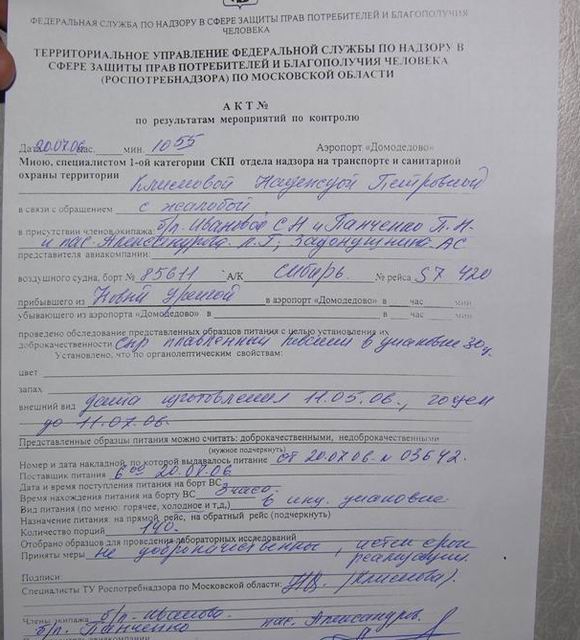 ФЕДЕРАЛЬНАЯ СЛУЖБА ПО НАДЗОРУ В СФЕРЕ ЗАЩИТЫ ПРАВ ПОТРЕБИТЕЛЕЙ И БЛАГОПОЛУЧИЯ
ЧЕЛОВЕКА
ТЕРРИТОРИАЛЬНОЕ УПРАВЛЕНИЕ ФЕДЕРАЛЬНОЙ СЛУЖБЫ ПО НАДЗОРУ В
СФЕРЕ ЗАЩИТЫ ПРАВ ПОТРЕБИТЕЛЕЙ И БЛАГОПОЛУЧИЯ ЧЕЛОВЕКА
(РОСПОТРЕБНАДЗОРА) ПО МОСКОВСКОЙ ОБЛАСТИ
АКТ №
по результатам мероприятий по контролю
Дата 20.07.06 час. мин. 10 55 Аэропорт «Домодедово»
Мною, специалистом 1-ой категории СКП отдела надзора на транспорте и санитарной
охраны территории
Климовой Надеждой Петровной
в связи с обращением с жалобой
в присутствии членов экипажа б/п. Ивановой С Н и Панченко П. Н.
и пас. Л.Г., АС
представителя авиакомпании:
воздушного судна, борт № 85611 А/К Сибирь № рейса S7 420
прибывшего из Новый Уренгой в аэропорт «Домодедово» в час мин
убывающего из аэропорта «Домодедово» в час мин
проведено обследование представленных образцов питания с целью установления их
доброкачественности сыр плавленный в упаковке 30
Установлено, что по органолептическим свойствам:
цвет
запах
внешний вид дата изготовления 11.05.06., годен
до 11.07.06.
Представленные образцы питания можно считать: доброкачественными, недоброкачественными
(нужное подчеркнуть)
Номер и дата накладной, по которой выдавалось питание от 20.07.06 N 03642.
Поставщик питания
Дата и время поступления питания на борт ВС 6 00 20.07.06
Время нахождения питания на борту ВС 3 часа
Вид питания (по меню: горячее, холодное и т,д,) в инд. упаковке
Назначение питания: на прямой рейс, на обратный рейс (подчеркнуть)
Количество порций 140.
Отобрано образцов для проведения лабораторных исследований
Приняты меры не доброкачественное, истек срок
реализации.
Подписи:
Специалисты ТУ Роспотребнадзора по Московской области: (Климова).
Члены экипажа б/п. Иванова
б/п. Панченко пас. Александров.